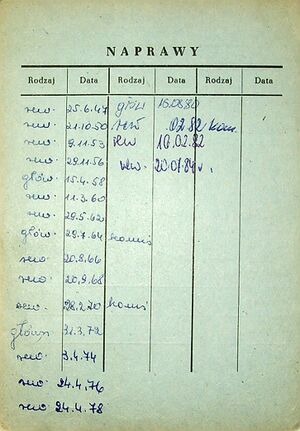 NAPRAWY
Rodzaj Data Rodzaj Data Rodzaj Data
rew. 25.6.47 głów 16.08.80
rew. 21.10.50 rew 02.82 kom.
rew. 9.11.53 rew 10.02.82
rew. 29.11.56 rew. 20.01.84
głów. 15.4.58
rew. 11.3.60
rew. 29.5.62
głów. 29.7.64
rew. 20.8.66
rew. 20.9.68
rew. 28.2.70
główn 31.3.72
rew. 3.4.74
rew 24.4.76
rew 24.4.78